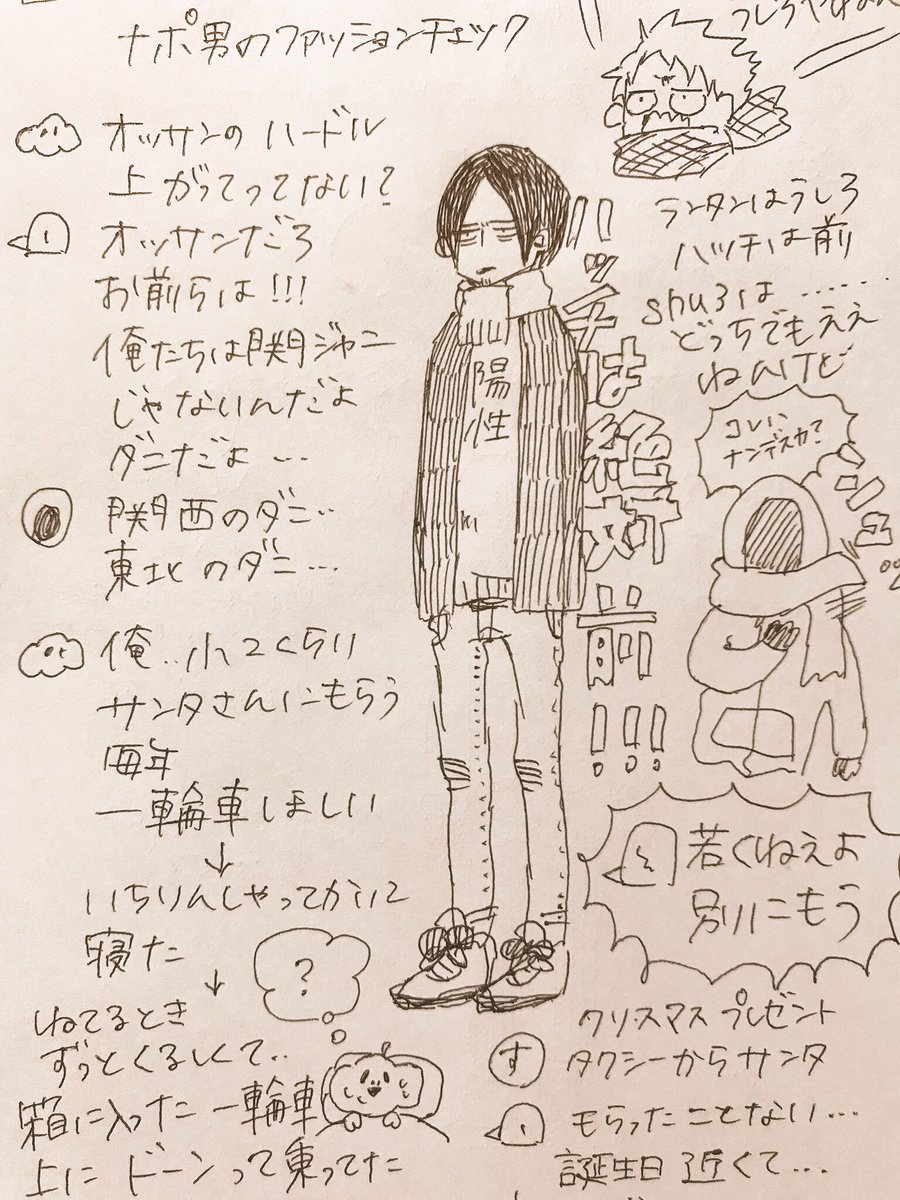 ナポ男のファッションチェック
オッサンのハードル
上がってってない?
オッサンだろ
お前らは!!!
俺たちは関ジャニ
じゃないんだよ
ダニだよ…
関西のダニ…
東北のダニ…
俺…小2くらい
サンタさんにもらう
毎年
一輪車ほしい
↓
いちりんしゃってかいて
寝た
↓
ねてるとき
ずっとくるしくて…
箱に入った一輪車
上にドーンって乗ってた
?
陽性
ハッチは絶対前!!!
ランタンはうしろ
ハッチは前
shu3は……
どっちでもええ
ねんけど
コレハ
ナンデスカ?
若くねえよ
別にもう
クリスマスプレゼント
す タクシーからサンタ
もらったことない…
誕生日近くて…